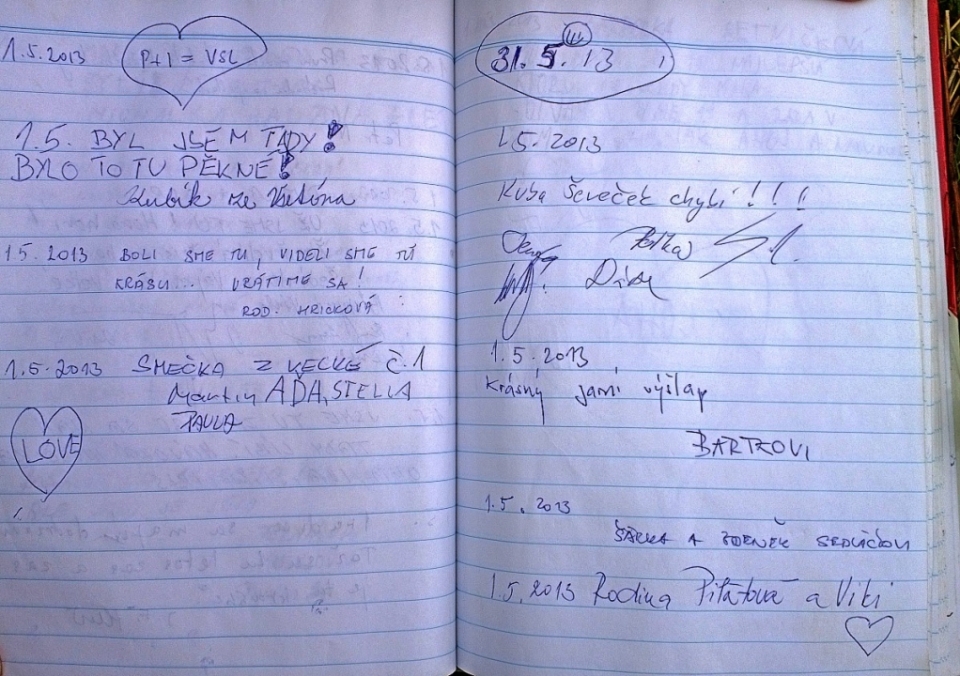 1.5.2013
P+I = VSL
1.5. BYL JSEM TADY!
BYLO TO TU PĚKNÉ!
Kubík ze
1.5.2013 BOLI SME TU, VIDELI SME TÚ
KRÁSU... VRÁTIME SA!
ROD. HRICKOVÁ
1.5.2013 SMEČKA Z KECKÉ Č.1
Martin ADA, STELLA
PAULA
LOVE
31.5.13
1.5.2013
Kuba Ševeček chybí!!!
1.5.2013
Krásný jarní výšlap
BARTKOVI
1.5.2013
ŠÁRKA A ZDENĚK SEDLÁČKOVI
1.5.2013 Rodina Pilátová a Viki